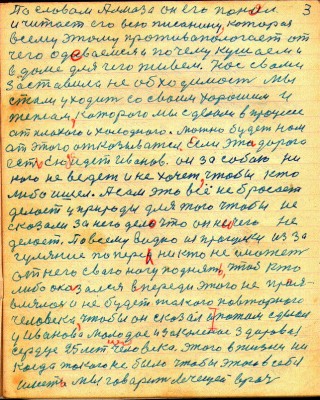 3
По словам Алмаза он его понял
и читает его всю писанину, которая
всему этому противополагает от
чего одеваемся и почему кушаем и
в доме для чего живем. Нас с вами
заставила необходимост. Мы
стали уходит со своим хорошим и
теплом, которого мы сделали в процессе
от плохого и холодного. Можно будет нам
от этого отказыватся. Если эта дорога
есть, ею идет Иванов. он за собою ни
кого не ведет и не хочет, чтобы кто
либо шел. А сам это всё не бросает
делает у природы для того чтобы не
сказали за него дело что он ничего не
делает. По всему видно из прагулки из за
гуляние по перед ни кто не сможет
от него сваю ногу поднять, чтоб кто
либо оказался впереди этого не проя-
влялося и не будет такого повторного
человека, чтобы он сказал и потом сделал
у Иванова молодое и закаленое здоровая
сердце 25 лет человека. Этого в жизни ни
когда такого не было чтобы это в себе
иметь. Мы говорит Лечещей врач